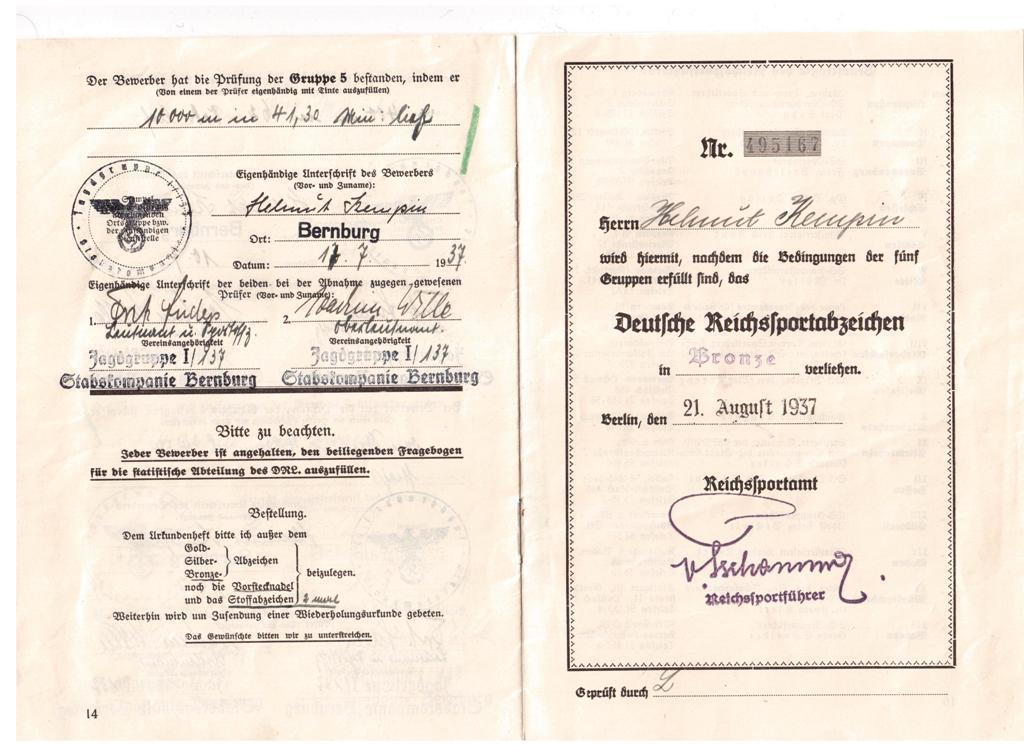 Der Bewerber hat die Prüfung der Gruppe 5 bestanden, indem er
(Von einem der Prüfer eigenhändig mit Tinte auszufüllen)
10 000 m in 41,30 Min: lief
Eigenhändige Unterschrift des Bewerbers
(Vor- und Zuname):
Helmut Kempin
Ort: Bernburg
Datum: 17. 7. 1937.
Eigenhändige Unterschrift der beiden bei der Abnahme zugegen gewesenen
Prüfer (Vor- und Zuname):
1.
2. Wille
Leutnant u. Sportoffz.
Oberleutnant.
Vereinsangehörigkeit
Vereinsangehörigkeit
Jagdgruppe I/137
Jagdgruppe I/137
Stabskompanie Bernburg
Stabskompanie Bernburg
Bitte zu beachten.
Jeder Bewerber ist angehalten, den beiliegenden Fragebogen
für die statistische Abteilung des DRL. auszufüllen.
Bestellung.
Dem Urkundenheft bitte ich außer dem
Gold-
Silber- Abzeichen
Bronze- beizulegen.
noch die Vorstecknadel
und das Stoffabzeichen 2 mal
Weiterhin wird um Zusendung einer Wiederholungsurkunde gebeten.
Das Gewünschte bitten wir zu unterstreichen.
14
Nr. 495167
Herrn Helmut Kempin
wird hiermit, nachdem die Bedingungen der fünf
Gruppen erfüllt sind, das
Deutsche Reichssportabzeichen
in Bronze verliehen.
Berlin, den 21. August 1937
Reichssportamt
v. Tschammer
Reichssportführer
Geprüft durch L